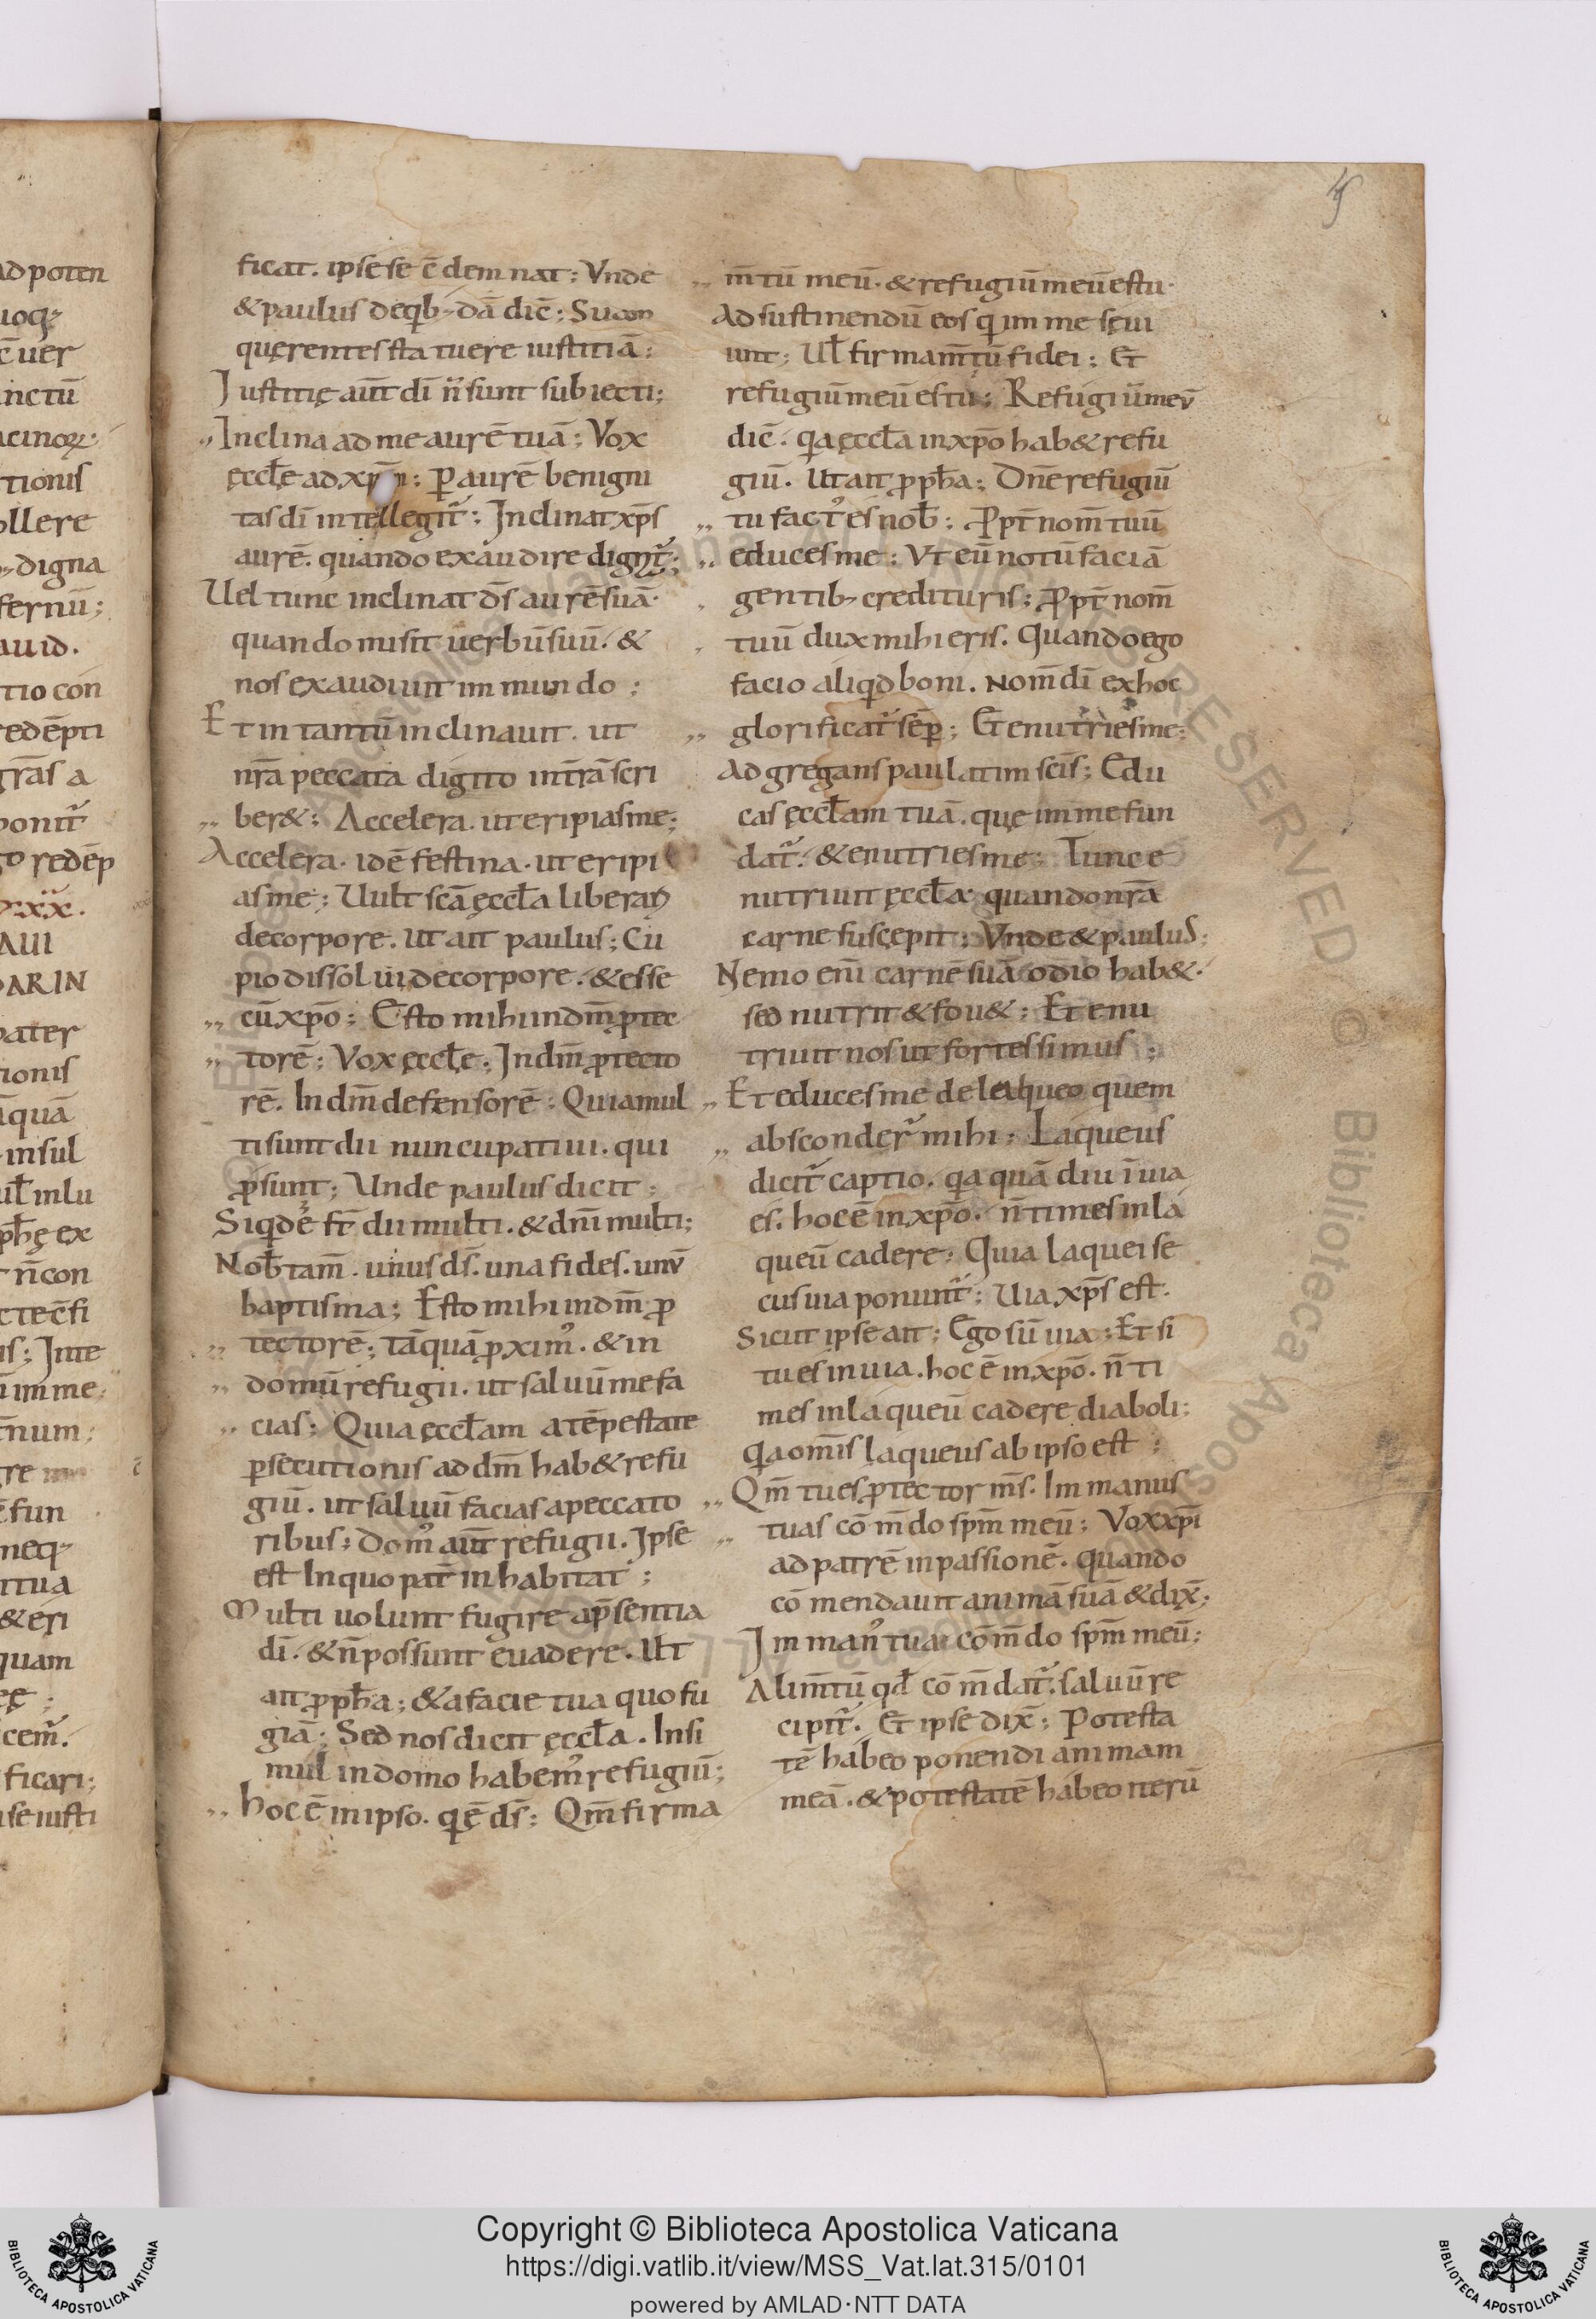 ad poten
uoq;
c̄ uer
inctū
acinoꝝ.
tionis
ollere
digna
fernū;
auid.
tio con
redēpti
grās a
ponit᷑
go redēp
xx.
AUI
DARIN
pater
tionis
āquā
insul
ul̄ inlu
ph̄ę ex
n̄ con
cte c̄fi
is; Inte
im me;
num;
gre
ē fun
neq;
ttua
& eri
quam
cem᷑.
ficari;
se iusti
45
ficat. ipse se c̄demnat; Vnde
& paulus deq̇b; dā dic̄; Suam
querentes statuere iustitiā;
Iustitię aūt dī n̄ sunt subiecti;
Inclina ad me aurē tuā; Vox
ęccl̄ę ad xp̄m; P aurē benigni
tas dī intellegit᷑; Inclinat xp̄s
aurē. quando exaudire dignt᷑;
Uel tunc inclinat d̄s aurē suā.
quando misit uerbū suū. &
nos exaudiuit in mundo;
Et in tantū inclinauit. ut
nrā peccata digito in trā scri
ber&; Accelera. ut eripias me;
Accelera. idē festina. ut eripi
as me; Uult sc̄a ęccl̄a liberari
de corpore. ut ait paulus; Cu
pio dissolui de corpore. & esse
cū xp̄o; Esto mihi in dm̄ ꝓtec
torē; Vox ęccl̄ę; In dm̄ ꝓtecto
rē. In dm̄ defensorē; Quia mul
ti sunt dii nuncupatiui. qui
ꝓsunt; Unde paulus dicit;
Siq̇dē st̄ dii multi. & dn̄i multi;
Nob̄ tam̄. unus d̄s. una fides. unū
baptisma; Esto mihi in dm̄ ꝓ
tectorē; tāquā ꝓxim᾿. & in
domū refugii. ut saluū me fa
cias; Quia ęccl̄am a tēpestate
ꝑsecutionis ad dm̄ hab& refu
giū. ut saluū facias a peccato
ribus; Dom᾿ aūt refugii. Ipse
est In quo pat̄ inhabitat;
Multi uolunt fugire a p̄sentia
dī. & n̄ possunt euadere. Ut
ait ꝓph̄a; & a facie tua quo fu
giā; Sed nos dicit ęccl̄a. In si
mul in domo habem᾿ refugiū;
hoc ē in ipso. q̇ ē d̄s; Qm̄ firma
m̄tū meū. & refugiū meū es tu.
Ad sustinendū eos q̇ in me sęui
unt; Ul̄ firmam̄tū fidei; Et
refugiū meū es tu; Refugiū meū
dic̄. qa ęccl̄a in xp̄o hab& refu
giū. Ut ait ꝓph̄a; Dn̄e refugiū
tu fact᾿ es nob̄; Ꝓpt̄ nom̄ tuū
educes me; Vt eū notū faciā
gentib; credituris; Ꝓpt̄ nom̄
tuū dux mihi eris. Quando ego
facio aliq̇d boni. Nom̄ dī ex hoc
glorificat᷑ sēp; Et enutries me;
Adgregans paulatim sc̄is; Edu
cas ęccl̄am tuā. quę in me fun
dat᷑. & enutries me; Tunc e
nutriuit ęccl̄a quando nrā
carnē suscepit; Vnde & paulus;
Nemo eni carnē suā odio hab&.
sed nutrit & fou&; Et enu
triuit nos ut fortes simus;
Et educes me de laqueo quem
absconder᷑ mihi; Laqueus
dicit᷑ captio. qa quādiu ī uia
es. hoc ē in xp̄o. n̄ times in la
queū cadere; Quia laquei se
cus uia ponunt᷑; Uia xp̄s est.
Sicut ipse ait; Ego sū uia; Et si
tu es in uia. hoc ē in xp̄o. n̄ ti
mes in laqueū cadere diaboli;
qa om̄is laqueus ab ipso est;
Qm̄ tu es ꝓtector m̄s. In manus
tuas cōm̄do sp̄m meū; Vox xp̄i
ad patrē in passionē. quando
cōmendauit animā suā & dix̄;
In man᾿ tuas cōm̄do sp̄m meū;
Alim̄tū qd̄ cōm̄dat᷑. saluū re
cipit᷑. Et ipse dix̄; Potesta
tē habeo ponendi animam
meā. & potestatē habeo iterū
Copyright © Biblioteca Apostolica Vaticana
https://digi.vatlib.it/view/MSS_Vat.lat.315/0101
powered by AMLAD·NTT DATA
BIBLIOTECA APOSTOLICA VATICANA
BIBLIOTECA APOSTOLICA VATICANA